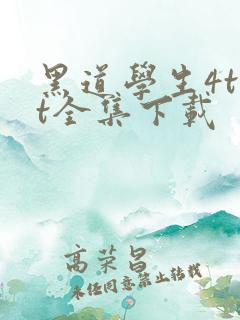 黑道學生4t
t全集下載
高荣昌
未经同意禁止转载